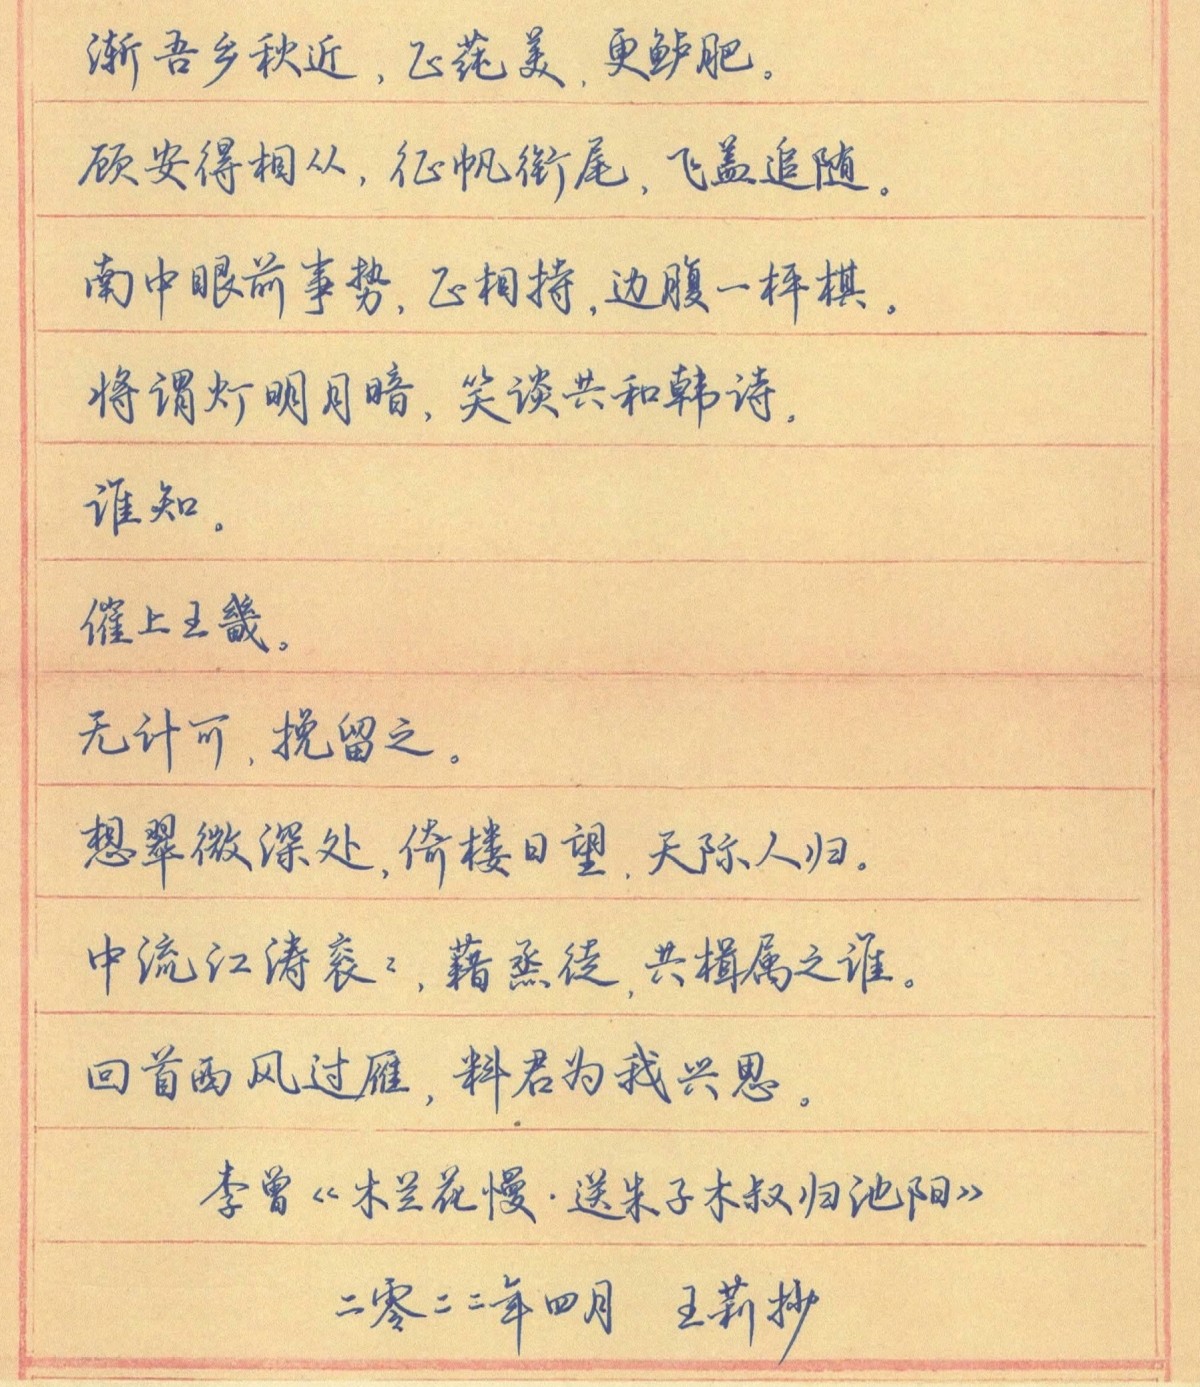 渐吾乡秋近，正莼美，更鲈肥。
顾安得相从，征帆衔尾，飞盖追随。
南中眼前事势，正相持，边腹一枰棋。
将谓灯明月暗，笑谈共和韩诗。
谁知。
催上王畿。
无计可，挽留之。
想翠微深处，倚楼日望，天际人归。
中流江涛衮々，藉烝徒，共楫属之谁。
回首西风过雁，料君为我兴思。
李曾《木兰花慢·送朱子木叔归池阳》
二零二二年四月 王莉抄